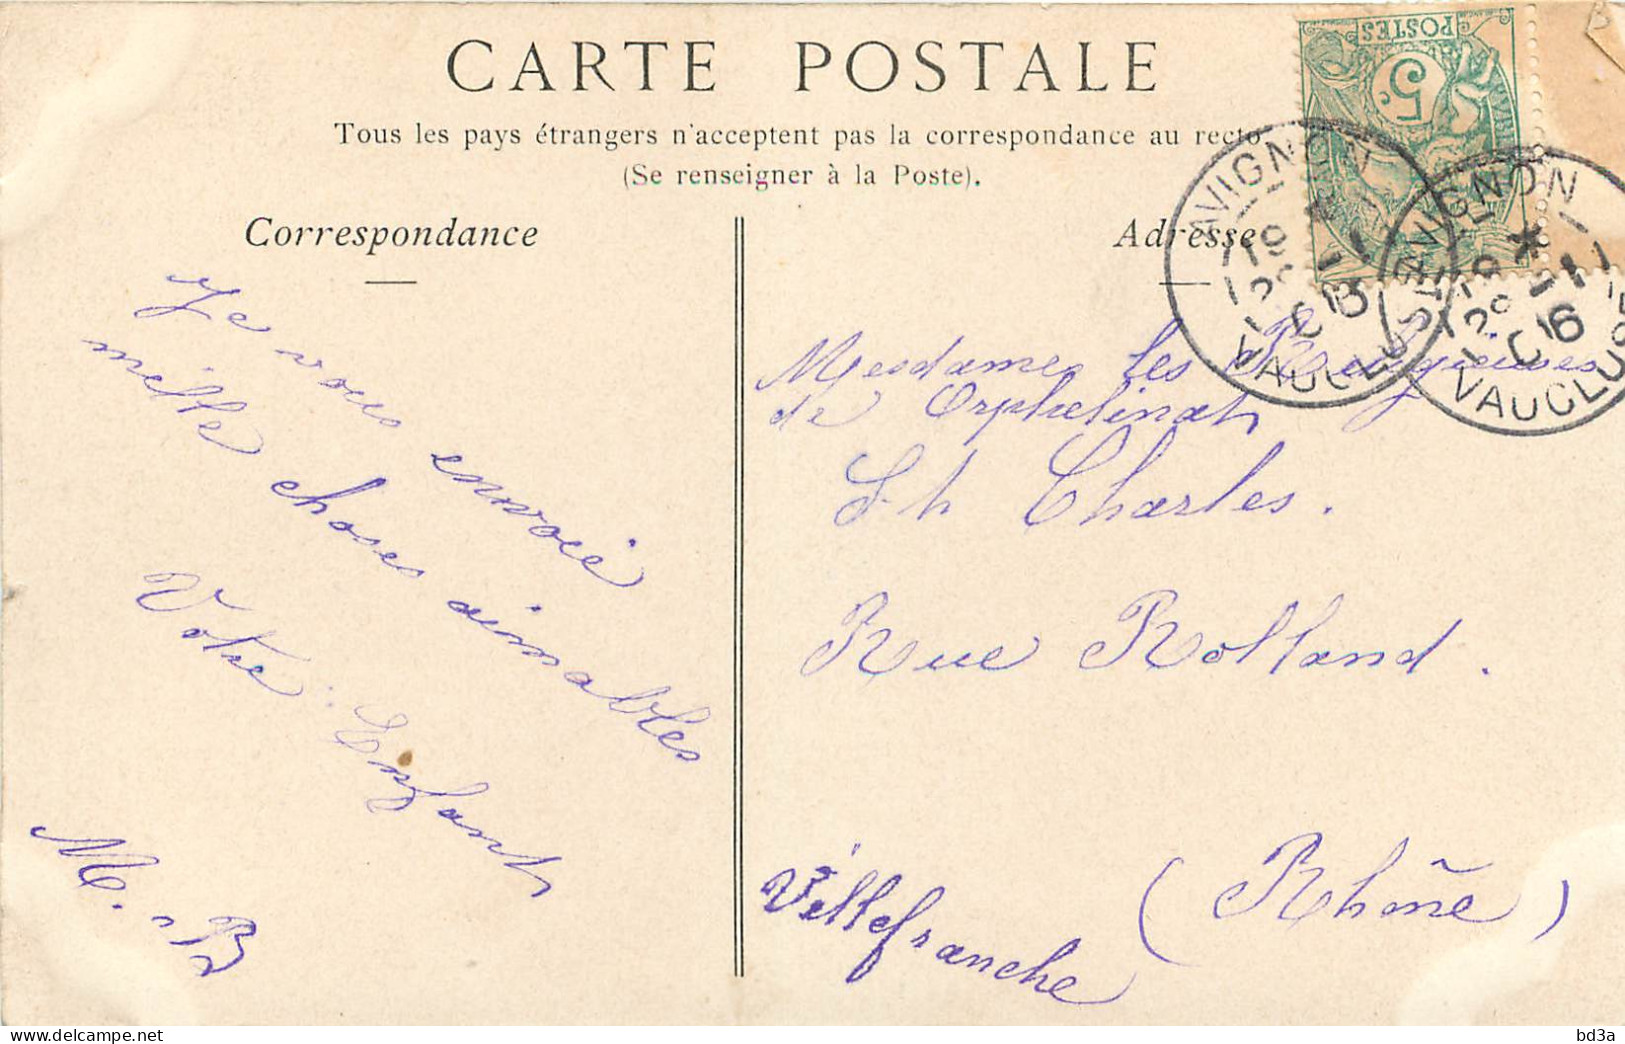 CARTE POSTALE
Tous les pays étrangers n'acceptent pas la correspondance au recto
(Se renseigner à la Poste).
Correspondance
Je vous envoie
mille choses aimables
Votre Enfant
M. B
Adresse
Mesdames les Religieuses
de Orphelinat
St Charles.
Rue Rolland.
Villefranche (Rhône)
POSTES
5c
AVIGNON
VAUCLUSE
AVIGNON
VAUCLUSE
bd3a